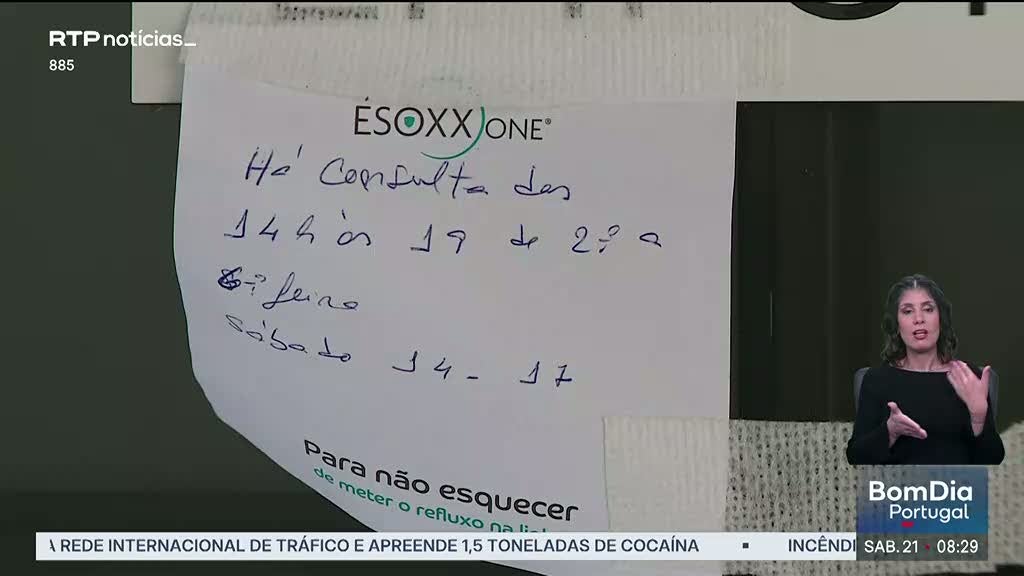 RTP notícias_
885
ÉSOXX ONE®
Há Consulta das
14h às 19 de 2.ª a
6.ª feira
Sábado 14 - 17
Para não esquecer
de meter o refluxo na
BomDia
Portugal
A REDE INTERNACIONAL DE TRÁFICO E APREENDE 1,5 TONELADAS DE COCAÍNA ▪ INCÊNDI
SAB. 21 • 08:29